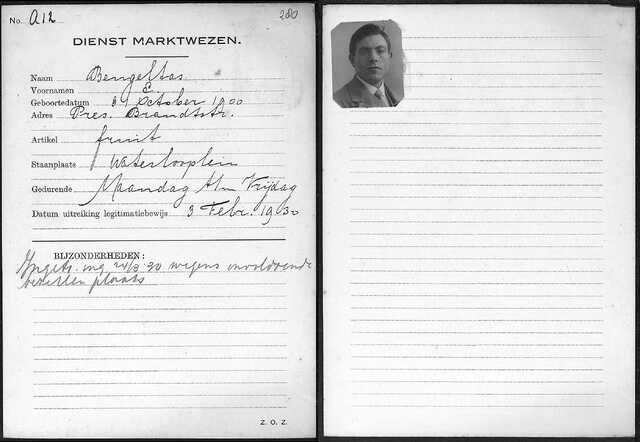 No. A12
280
DIENST MARKTWEZEN.
Naam Bengeltas
Voornamen E
Geboortedatum 8 October 1900
Adres Pres. Brandtstr.
Artikel fruit
Staanplaats Waterlooplein
Gedurende Maandag t/m Vrijdag
Datum uitreiking legitimatiebewijs 3 Febr. 1930
BIJZONDERHEDEN:
Ingetr. ing. 24/3 30 wegens onvoldoende
bezetten plaats
Z. O. Z.